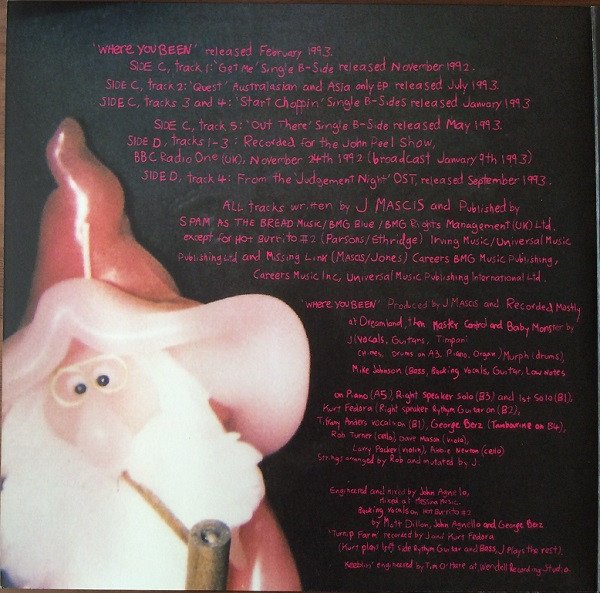 'WHERE YOU BEEN' released February 1993.
SIDE C, track 1: 'Get Me' Single B-Side released November 1992.
SIDE C, track 2: 'Quest' Australasian and Asia only EP released July 1993.
SIDE C, tracks 3 and 4: 'Start Choppin' Single B-Sides released January 1993
SIDE C, track 5: 'Out There' Single B-Side released May 1993.
SIDE D, tracks 1-3: Recorded for the John Peel Show,
BBC Radio One (UK), November 24th 1992 (broadcast January 9th 1993)
SIDE D, track 4: From the 'Judgement Night' OST, released September 1993.
ALL tracks written by J MASCIS and Published by
SPAM AS THE BREAD Music/BMG Blue /BMG Rights Management (UK) Ltd.
except for HOT BURRITO #2 (Parsons/Ethridge) Irving Music/Universal Music
Publishing Ltd and Missing Link (Mascis/Jones) Careers BMG Music Publishing,
Careers Music Inc, Universal Music Publishing International Ltd.
'WHERE YOU BEEN' Produced by J MASCIS and Recorded Mostly
at Dreamland, then Master Control and Baby Monster by
J (Vocals, Guitars, Timpani
Chimes, Drums on A3, Piano, Organ) Murph (drums),
Mike Johnson (Bass, Backing vocals, Guitar, Low Notes
on Piano (A5) Right speaker solo (B3) and 1st Solo (B1),
Kurt Fedora (Right speaker Rythym Guitar on (B2),
Tiffany Anders vocals on (B1), George Berz (Tambourine on B4),
Rob Turner (cello), Dave Mason (viola),
Larry Packer (violin), Abbie Newton (cello)
Strings arranged by Rob and mutated by J.
Engineered and mixed by John Agnello,
Mixed at Messina Music.
Backing vocals on HOT BURRITO #2
by Matt Dillon, John Agnello and George Berz
'Turnip Farm' recorded by J and Kurt Fedora
(Kurt plays left side Rythym Guitar and Bass, J Plays the rest).
Keeblin' engineered by Tim O'Hare at Wendell Recording Studio.